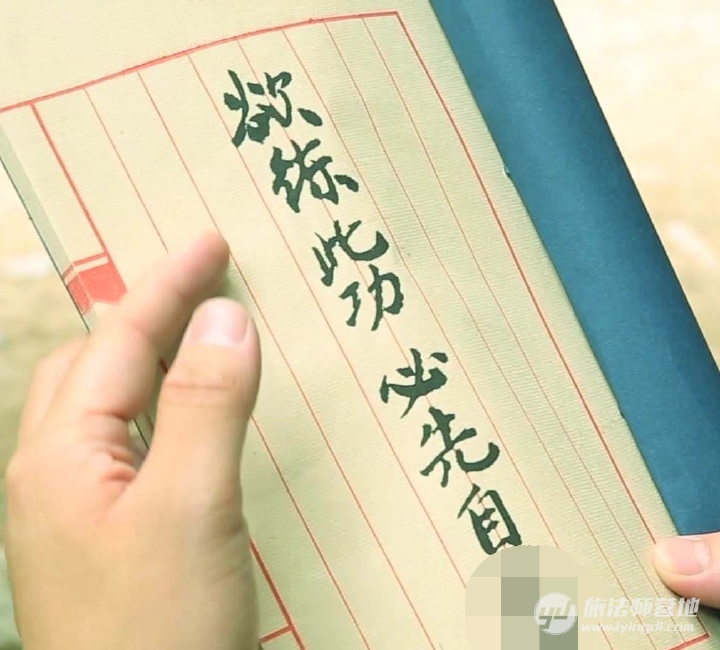 欲练此功 必先自
旅法师营地
www.iyingdi.com